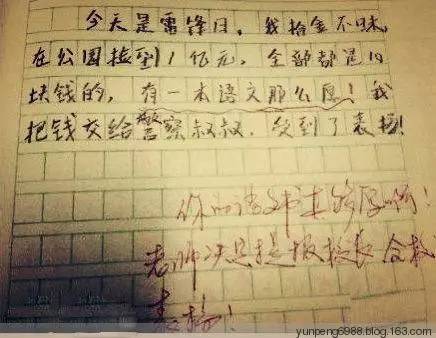 今天是雷锋日，我拾金不昧，
在公园捡到1亿元，全部都是10
块钱的，有一本语文那么厚！我
把钱交给警察叔叔，受到了表扬！
你的语文书真够厚啊！
老师决定提报校长 全校
表扬！
yunpeng6988.blog.163.com